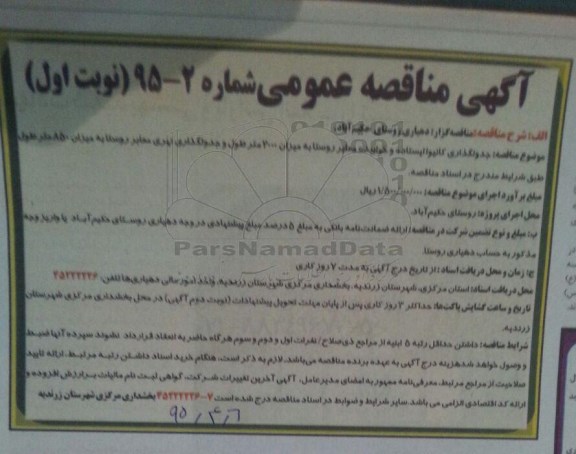 آگهی مناقصه عمومی شماره ۲-۹۵ (نوبت اول)
الف: شرح مناقصه: مناقصه گزار: دهیاری روستای حکیم آباد
موضوع مناقصه: جدولگذاری کانیوا ایستاده و خوابیده معابر روستا به میزان ۲۰۰۰ متر طول و جدولگذاری نهری معابر روستا به میزان ۸۵۰ متر طول
طبق شرایط مندرج در اسناد مناقصه.
مبلغ برآورد اجرای موضوع مناقصه: ریال
محل اجرای پروژه: روستای حکیم آباد
ب: مبلغ و نوع تضمین شرکت در مناقصه: ارائه ضمانت نامه بانکی به مبلغ ۵ درصد مبلغ پیشنهادی در وجه دهیاری روستای حکیم آباد یا واریز وجه
مذکور به حساب دهیاری روستا.
ج: زمان و محل دریافت اسناد: از تاریخ درج آگهی به مدت ۷ روز کاری
محل دریافت اسناد: استان مرکزی، شهرستان زرندیه، بخشداری مرکزی شهرستان زرندیه، واحد امور مالی دهیاری ها تلفن: ۴۵۲۲۲۲۲۶
تاریخ و ساعت گشایش پاکت ها: حداکثر ۳ روز کاری پس از پایان مهلت تحویل پیشنهادات (نوبت دوم آگهی) در محل بخشداری مرکزی شهرستان
زرندیه.
شرایط مناقصه: داشتن حداقل رتبه ۵ ابنیه از مراجع ذی صلاح/ نفرات اول و دوم و سوم هرگاه حاضر به انعقاد قرارداد نشوند سپرده آنها ضبط
و وصول خواهد شد هزینه درج آگهی به عهده برنده مناقصه می باشد. لازم به ذکر است، هنگام خرید اسناد داشتن رتبه مرتبط، ارائه تایید
صلاحیت از مراجع مرتبط، معرفی نامه ممهور به امضای مدیرعامل، آگهی آخرین تغییرات شرکت، گواهی ثبت نام مالیات بر ارزش افزوده و
ارائه کد اقتصادی الزامی می باشد. سایر شرایط و ضوابط در اسناد مناقصه درج شده است ۷-۴۵۲۲۲۲۲۶ بخشداری مرکزی شهرستان زرندیه
۹۵/۴/۶
ParsNamadData